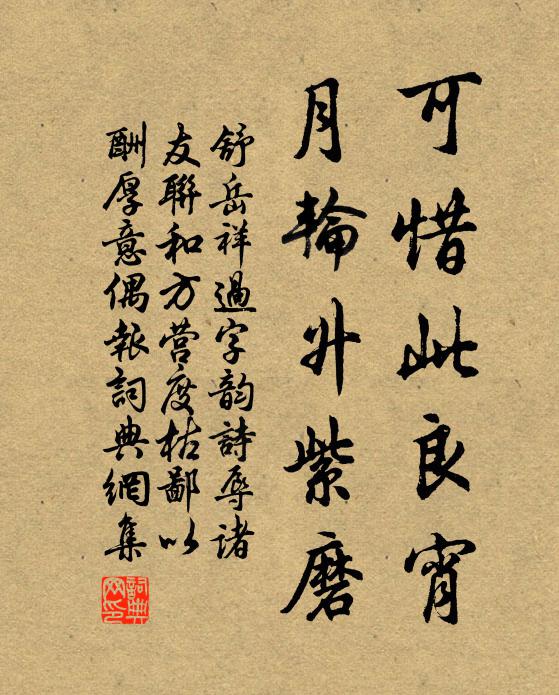 可惜此良宵
月輪升紫磨
舒岳祥過字韵詩辱諸
友聯和方营度枯鄙以
酬厚意偶報詞典網集
詞典
网印